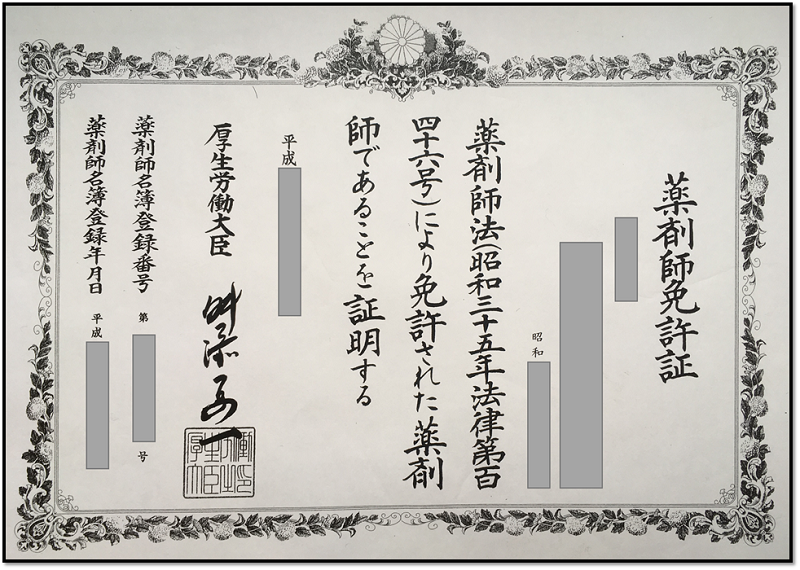 薬剤師免許証
昭和
薬剤師法(昭和三十五年法律第百
四十六号)により免許された薬剤
師であることを証明する
平成
厚生労働大臣
舛添要一
薬剤師名簿登録番号 第 号
薬剤師名簿登録年月日 平成